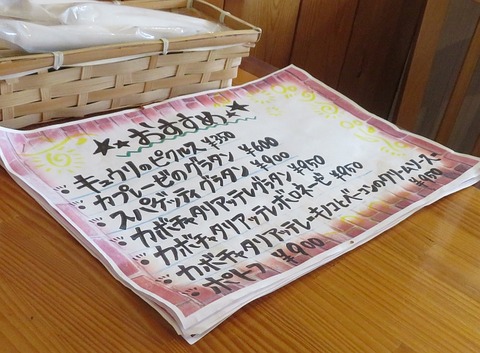 ★★おすすめ★★
キュウリのピクルス ¥350
カプレーゼのグラタン ¥600
スパゲッティグラタン ¥900
カボチャタリアッテレグラタン ¥950
カボチャタリアッテレボロネーゼ ¥950
カボチャタリアッテレーキノコとベーコンのクリームソース
ポトフ ¥900